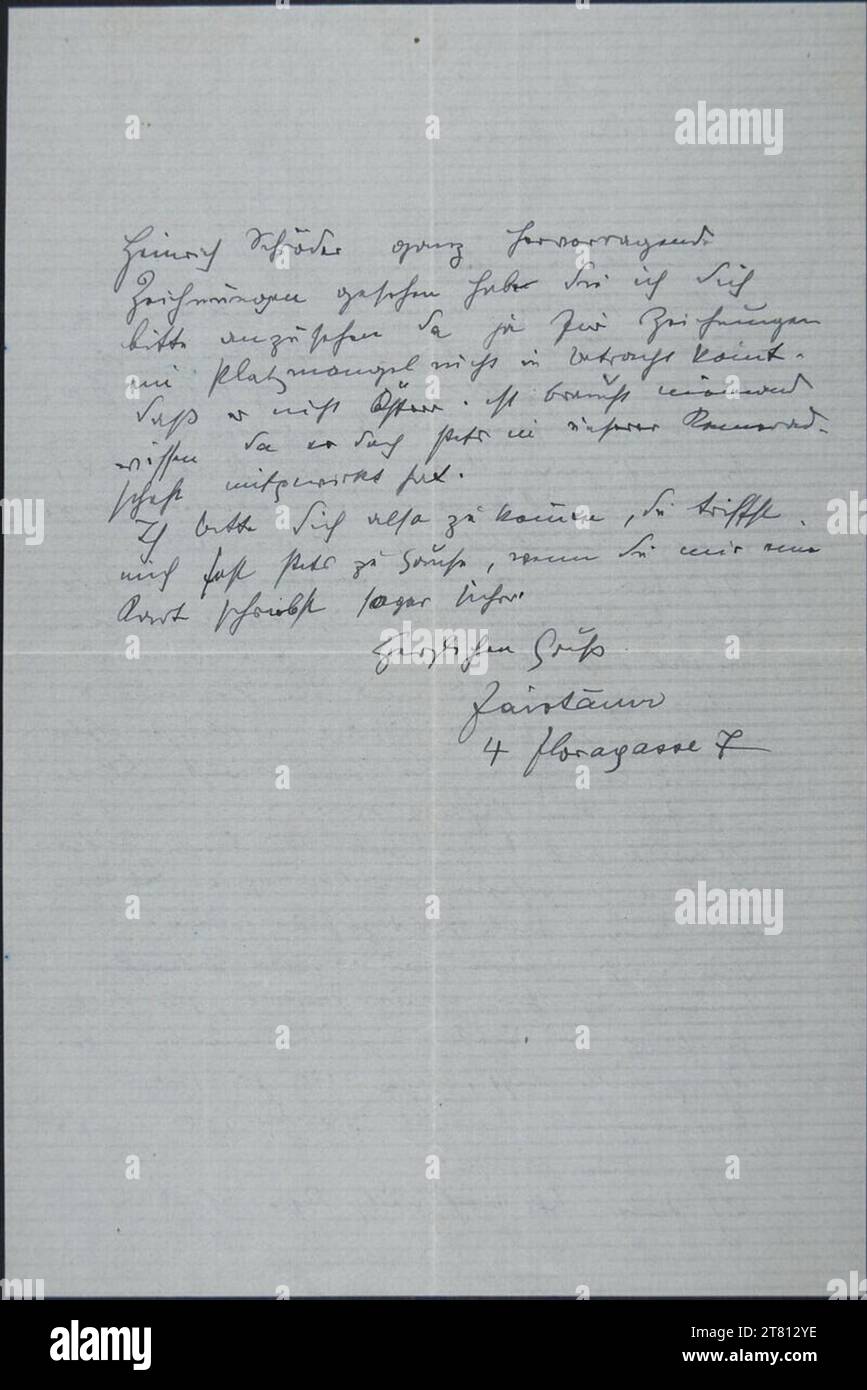 Heinrich Schröder ganz hervorragende
Zeichnungen gesehen habe die ich Dich
bitte anzusehen da ja für Zeichnungen
ein Platzmangel nicht in betracht kommt.
daß er nicht Österr. ist braucht niemand
wissen da er doch stets in unserer Kamerad-
schaft mitgewirkt hat.
Ich bitte Dich also zu kommen, du triffst
mich fast stets zu Hause, wenn du mir eine
Kart schreibst sogar sicher.
Herzlichen Gruß
4 Floragasse 7
alamy
alamy
Image ID: 2T812YE
www.alamy.com